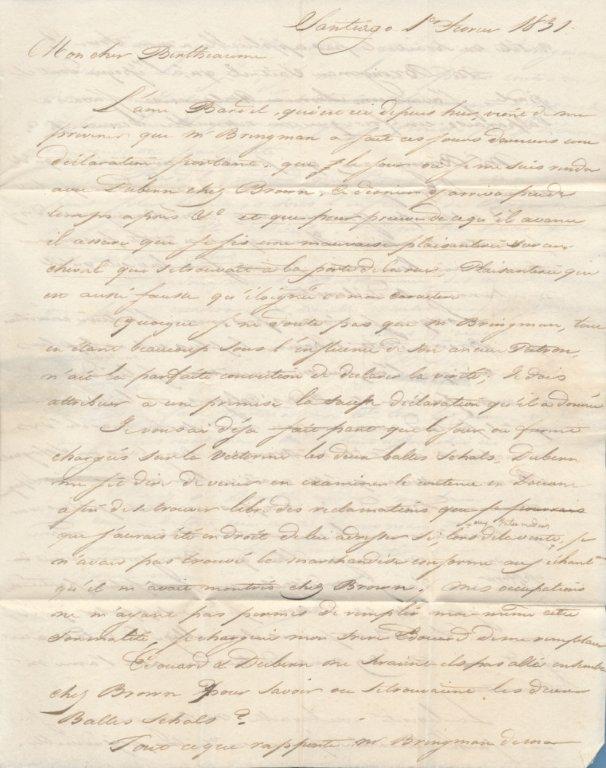 Santiago 1er Fevrier 1831.
Mon cher Bertheaume
L'ami Bardel, qui est ici depuis hier, vient de me
prévenir que Mr Bringman a fait ces jours derniers une
déclaration portant, que le jour où je me suis rendu
avec Dubern chez Brown, ce dernier y arriva peu de
temps après &c et que pour preuve de ce qu'il avance
il assure que je fis une mauvaise plaisanterie sur un
cheval qui se trouvait à la porte de la rue. Plaisanterie qui
est aussi fausse qu'éloignée de mon caractère
Quoique je ne doute pas que Mr Bringman, tout
en étant beaucoup sous l'influence de son ancien Patron,
n'ait la parfaite conviction de déclarer la vérité, je dois
attribuer à une méprise la fausse déclaration qu'il a donnée
Je vous ai déja fait part que le jour où furent
chargés sur la Victorine les deux balles Schals, Dubern
me fit dire de venir en examiner le contenu en Douane
afin de se trouver libre des réclamations que je pourrais
que j'aurais été en droit de lui adresser si, lors de la vente, je
n'avais pas trouvé la marchandise conforme aux échantillons
qu'il m'avait montrés chez Brown; mes occupations
ne m'ayant pas permis de remplir moi même cette
formalité, je chargeais mon frère Edouard de me remplacer
Edouard & Dubern ne seraient ils pas allés ensemble
chez Brown pour savoir où se trouvaient les deux
Balles Schals?
Tout ce que rapporte Mr Bringman de ma